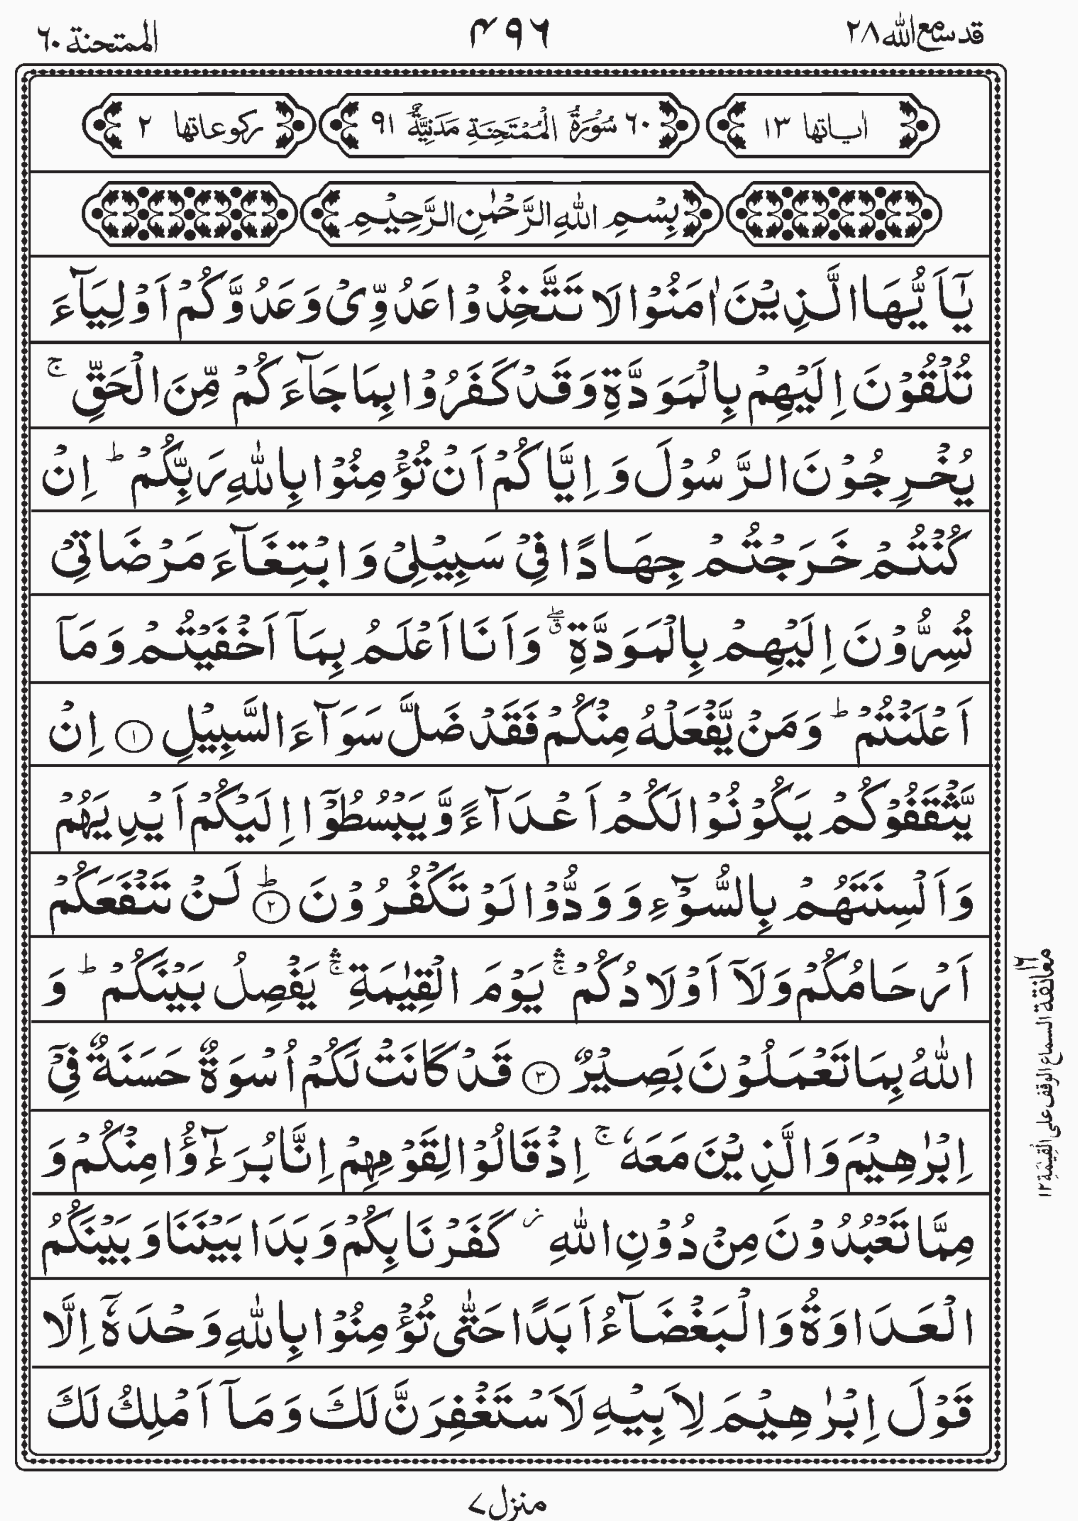 قد سمع الله ٢٨
٤٩٦
الممتحنة ٦٠
اٰیاتها ١٣
٦٠ سُوْرَةُ الْمُمْتَحِنَةِ مَدَنِیَّةٌ ٩١
رکوعاتها ٢
بِسْمِ اللّٰهِ الرَّحْمٰنِ الرَّحِیْمِ
یٰۤاَیُّهَا الَّذِیْنَ اٰمَنُوْا لَا تَتَّخِذُوْا عَدُوِّیْ وَعَدُوَّكُمْ اَوْلِیَآءَ
تُلْقُوْنَ اِلَیْهِمْ بِالْمَوَدَّةِ وَقَدْ كَفَرُوْا بِمَا جَآءَكُمْ مِّنَ الْحَقِّ ۚ
یُخْرِجُوْنَ الرَّسُوْلَ وَاِیَّاكُمْ اَنْ تُؤْمِنُوْا بِاللّٰهِ رَبِّكُمْ ؕ اِنْ
كُنْتُمْ خَرَجْتُمْ جِهَادًا فِیْ سَبِیْلِیْ وَابْتِغَآءَ مَرْضَاتِیْ
تُسِرُّوْنَ اِلَیْهِمْ بِالْمَوَدَّةِ ۖق وَاَنَا اَعْلَمُ بِمَاۤ اَخْفَیْتُمْ وَمَاۤ
اَعْلَنْتُمْ ؕ وَمَنْ یَّفْعَلْهُ مِنْكُمْ فَقَدْ ضَلَّ سَوَآءَ السَّبِیْلِ ۝١ اِنْ
یَّثْقَفُوْكُمْ یَكُوْنُوْا لَكُمْ اَعْدَآءً وَّیَبْسُطُوْۤا اِلَیْكُمْ اَیْدِیَهُمْ
وَاَلْسِنَتَهُمْ بِالسُّوْٓءِ وَوَدُّوْا لَوْ تَكْفُرُوْنَ ؕ۝٢ لَنْ تَنْفَعَكُمْ
اَرْحَامُكُمْ وَلَاۤ اَوْلَادُكُمْ ۛۚ یَوْمَ الْقِیٰمَةِ ۛۚ یَفْصِلُ بَیْنَكُمْ ؕ وَ
اللّٰهُ بِمَا تَعْمَلُوْنَ بَصِیْرٌ ۝٣ قَدْ كَانَتْ لَكُمْ اُسْوَةٌ حَسَنَةٌ فِیْۤ
اِبْرٰهِیْمَ وَالَّذِیْنَ مَعَهٗ ۚ اِذْ قَالُوْا لِقَوْمِهِمْ اِنَّا بُرَءٰٓؤُا مِنْكُمْ وَ
مِمَّا تَعْبُدُوْنَ مِنْ دُوْنِ اللّٰهِ ؗ كَفَرْنَا بِكُمْ وَبَدَا بَیْنَنَا وَبَیْنَكُمُ
الْعَدَاوَةُ وَالْبَغْضَآءُ اَبَدًا حَتّٰی تُؤْمِنُوْا بِاللّٰهِ وَحْدَهٗۤ اِلَّا
قَوْلَ اِبْرٰهِیْمَ لِاَبِیْهِ لَاَسْتَغْفِرَنَّ لَكَ وَمَاۤ اَمْلِكُ لَكَ
معانقة ١٦ السماع الوقف علی القیمة ١٢
منزل ٧